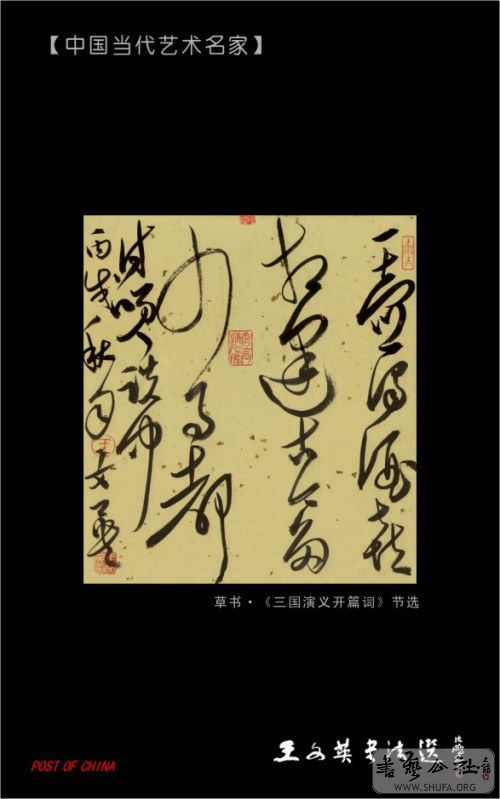 【中国当代艺术名家】
一壺濁酒喜
相逢古今多
少事都
付笑談中
丙戌秋月文英
草书·《三国演义开篇词》节选
王文英书法選
POST OF CHINA
書藝公社
WWW.SHUFA.ORG